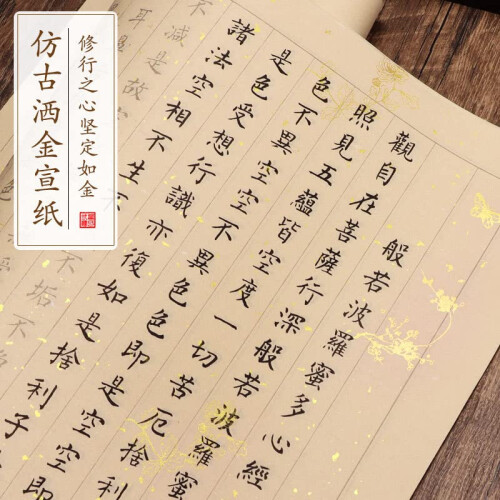 修行之心坚定如金
仿古洒金宣纸
般若波羅蜜多心經
觀自在菩薩行深般若波羅蜜
照見五蘊皆空度一切苦厄捨利
色不異空空不異色色即是空空即
是色受想行識亦復如是捨利子
諸法空相不生不
垢不
不減是故